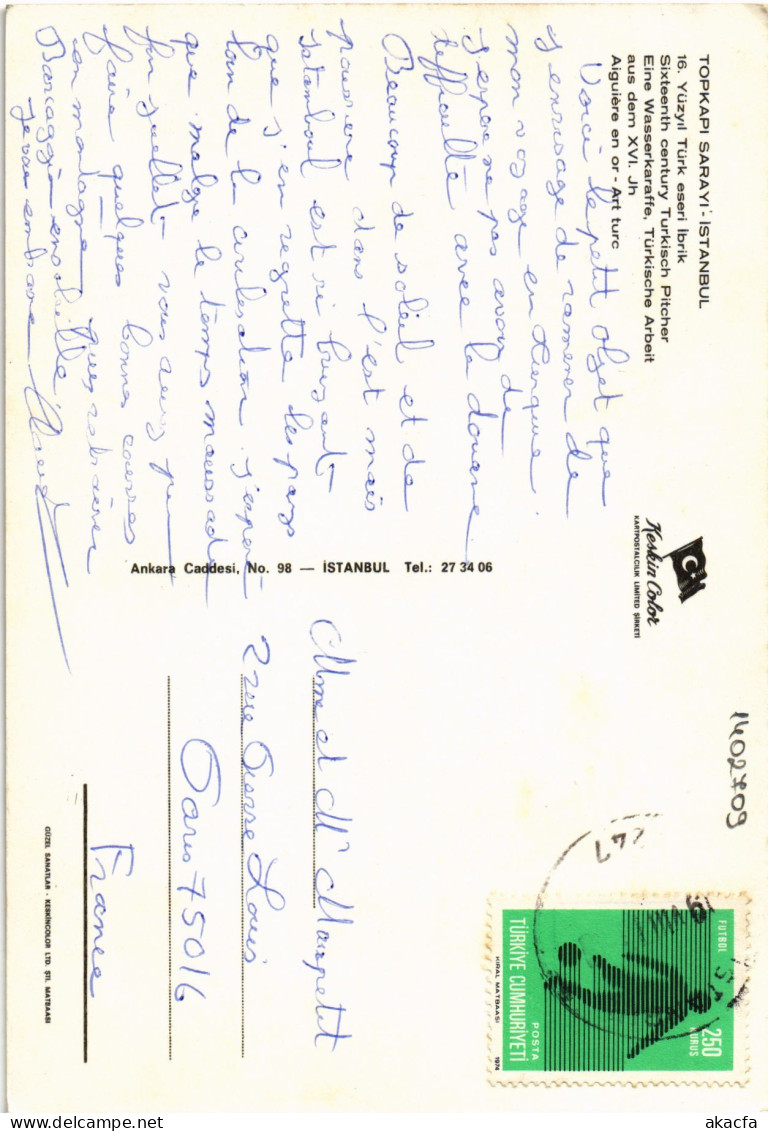 TOPKAPI SARAYI - İSTANBUL
16. Yüzyıl Türk eseri İbrik
Sixteenth century Turkisch Pitcher
Eine Wasserkaraffe, Türkische Arbeit
aus dem XVI. Jh
Aiguière en or - Art turc
Voici le petit objet que
j'envisage de ramener de
mon voyage en Turquie.
J'espère ne pas avoir de
difficulté avec la douane.
Beaucoup de soleil et de
poussière dans l'est mais
Istamboul est si
que j'en regrette les pays
de la civilisation. J'espère
que malgré le temps maussade
fin juillet vous aurez pu
faire quelques bonnes courses
en montagne.
ensoleillée
Je vous embrasse
Keskin Color
KARTPOSTALCILIK LİMİTED ŞİRKETİ
Ankara Caddesi, No. 98 — İSTANBUL Tel.: 27 34 06
Mme et Mr Maupetit
2 rue Pierre Louis
Paris 75016
France
1402709
FUTBOL
250
KURUŞ
POSTA
TÜRKİYE CUMHURİYETİ
KIRAL MATBAASI 1974
GÜZEL SANATLAR - KESKİNCOLOR LTD. ŞTİ. MATBAASI
akacfa
akacfa